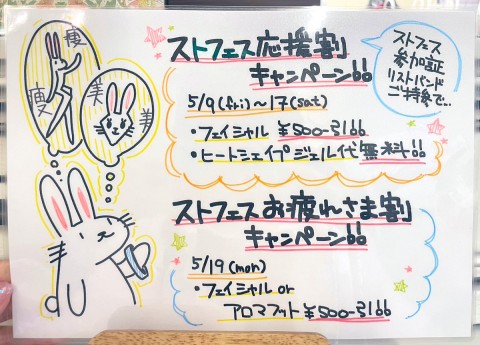 ストフェス応援割
キャンペーン!!
5/9(fri)～17(sat)
・フェイシャル ¥500-引き!!
・ヒートシェイプジェル代無料!!
ストフェス
参加証
リストバンド
ご持参で…
ストフェスお疲れさま割
キャンペーン!!
5/19(mon)
・フェイシャル or
アロマフット¥500-引き!!
痩
痩
美
美